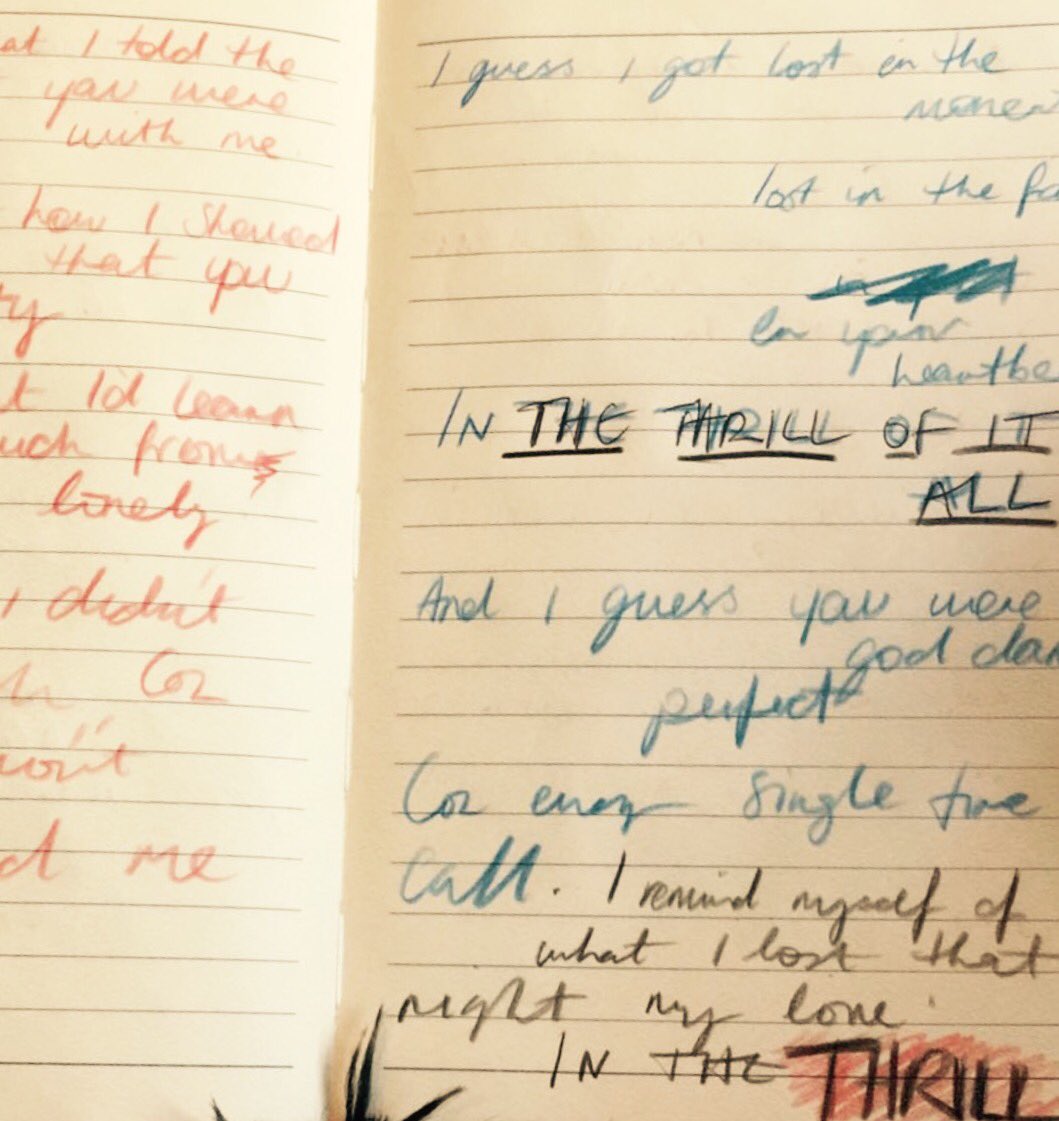 at I told the
you were
with me
how I showed
that you
ry
t I'd learn
uch from
lonely
I didn't
Coz
won't
d me
I guess I got lost in the
momen
lost in the fa
in your
heartbe
IN THE THRILL OF IT
ALL
And I guess you were
good dam
perfect
Coz every single time
call. I remind myself of
what I lost that
night my love
IN THE THRILL